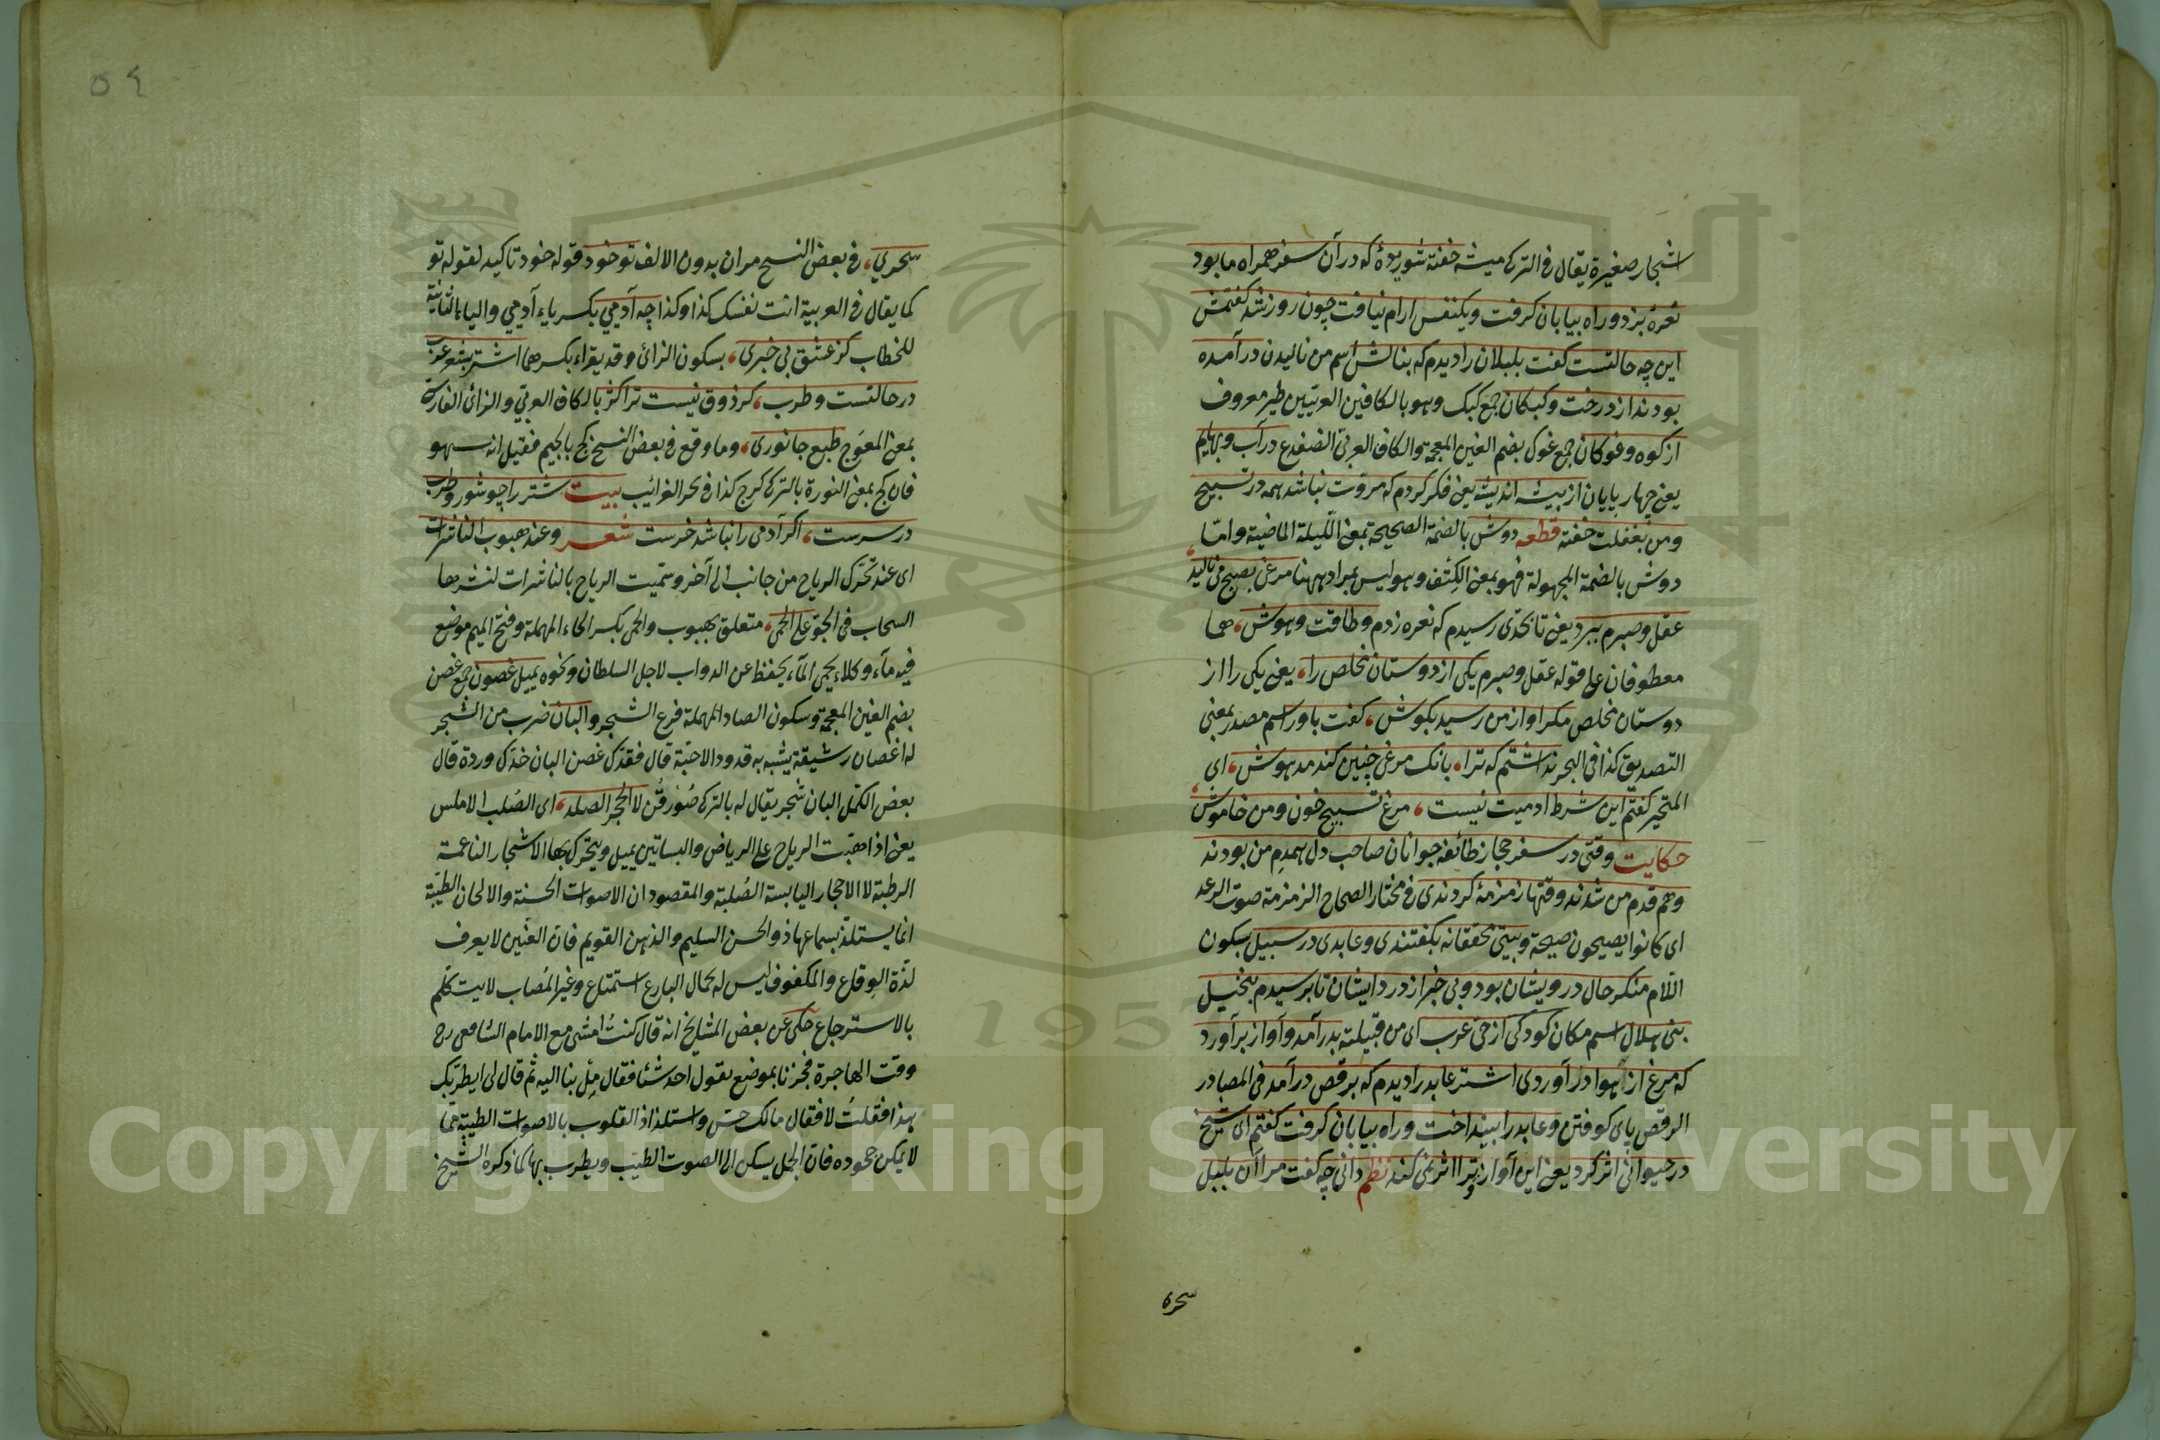 اشجار صغيرة يقال فى التركى ميشه خفته شوريدۀ كه در آن سفر همراه ما بود
نعرۀ بزد وراه بيابان كرفت ويكنفس ارام نيافت چون روز شد كفتمش
اين چه حالتست كفت بلبلان را ديدم كه بنالش اسم من ناليدن در آمده
بودند از درخت وكبكان جمع كبك وهو بالكافين العربيتين طير معروف
از كوه وغوكان جمع غوك بضم الغين المعجمة والكاف العربى الضفدع در آب وبهايم
يعنى چهار پايان از بيشه انديشه يعنى فكر كردم كه مروت نباشد همه در تسبيح
ومن بغفلت خفته قطعه دوش بالضمة الصحيحة بمعنى الليلة الماضية واما
دوش بالضمة المجهولة فهو بمعنى الكتف وهو ليس بمراد ههنا مرغى بصبح مى ناليد
عقل وصبرم ببرد يعنى تا بحدى رسيدم كه نعره زدم وطاقت وهوش هما
معطوفان على قوله عقل وصبرم يكى از دوستان مخلص را يعنى يكى را از
دوستان مخلص مكر اواز من رسيد بكوش كفت باور اسم مصدر بمعنى
التصديق كذا فى البحر نداشتم كه ترا بانك مرغى چنين كند مدهوش اى
المتحير كفتم اين شرط ادميت نيست مرغ تسبيح خون ومن خاموش
حكايت وقتى در سفر حجاز طائفه جوانان صاحب دل همدم من بودند
وهم قدم من شدند وقتها زمزمۀ كردندى فى مختار الصحاح الزمزمة صوت الرعد
اى كانوا يصيحون صيحة وبيتى محققانه بكفتندى وعابدى در سبيل بسكون
اللام منكر حال درويشان بود وبى خبر از درد ايشان تا برسيدم بنخيل
بنى هلال اسم مكان كودكى از حى عرب اى من قبيلته بدر آمد وآواز بر آورد
كه مرغ از هوا در آوردى اشتر عابد را ديدم كه برقص در آمد فى المصادر
الرقص پاى كوفتن وعابد را بينداخت وراه بيابان كرفت كفتم اى شيخ
در حيوانى اثر كرد يعنى اين آواز وترا اثر نمى كند نظم دانى چه كفت مرا آن بلبل
سحرى
سحري فى بعض النسخ مران بدون الالف تو خود قوله خود تاكيد لقوله تو
كما يقال فى العربية انت نفسك كذا وكذا چه آدمي بكسر ياء آدمي والياء الثانية
للخطاب كز عشق بى خبرى بسكون الزائ وقد يقراء بكسرها اشتر بشعر عرب
در حالتست وطرب كر ذوق نيست ترا كژ بالكاف العربي والزائ الفارسية
بمعنى المعوج طبع جانورى وما وقع فى بعض النسخ كج بالجيم فقيل انه سهو
فان كج بمعنى النورة بالتركى كرج كذا فى بحر الغرائب بيت شتر را چو شور وطرب
در سرست اكر آدمى را نباشد خرست شعر وعند هبوب الناشرات
اى عند تحرك الرياح من جانب الى آخر وسميت الرياح بالناشرات لنشرها
السحاب فى الجو على الحمى متعلق بهبوب والحمى بكسر الحاء المهملة وفتح الميم موضع
فيه ماء وكلاء يحمى الماء يحفظ عن الدواب لاجل السلطان ونحوه يميل غصون جمع غصن
بضم الغين المعجمة وسكون الصاد المهملة فرع الشجر والبان ضرب من الشجر
له اغصان رشيقة يشبه به قدود الاحبة قال فقدك غصن البان خدك وردة قال
بعض الكمل البان شجر يقال له بالتركى لا الحجر الصلد اى الصلب الاملس
يعنى اذا هبت الرياح على الرياض والبساتين يميل ويتحرك بها الاشجار الناعمة
الرطبة لا الاحجار اليابسة الصلبة والمقصود ان الاصوات الحسنة والالحان الطيبة
انما يستلذ بسماعها ذو الحس السليم والذهن القويم فان العنين لا يعرف
لذة الوقاع والمكفوف ليس له بجمال البارع استمتاع وغير المصاب لا يتكلم
بالاسترجاع حكى عن بعض المشايخ انه قال كنت امشى مع الامام الشافعى رح
وقت الهاجرة فجزنا بموضع يقول احد شئا فقال مل بنا اليه ثم قال لى ايطربك
بهذا فقلت لا فقال مالك حس واستلذاذ القلوب بالاصوات الطيبة مما
لا يمكن جحوده فان الجمل يسكن الى الصوت الطيب ويطرب بها كما ذكره الشيخ